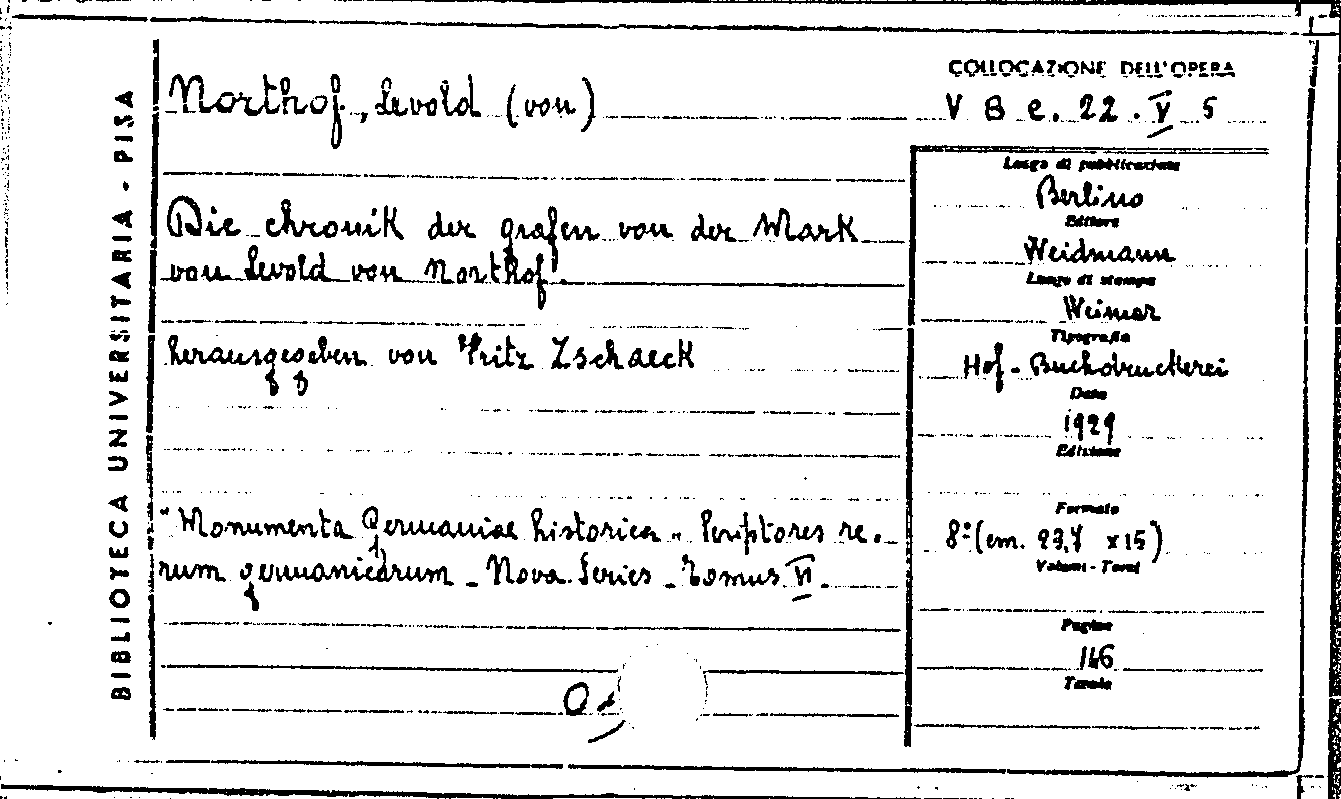 BIBLIOTECA UNIVERSITARIA - PISA
Northof, Levold (von)
Die chronik der grafen von der Mark
von Levold von Northof.
herausgegeben von Fritz Zschaeck
"Monumenta Germaniae historica" Scriptores re-
rum germanicarum - Nova Series - Tomus VI.
COLLOCAZIONE DELL'OPERA
V B c. 22. V 5
Luogo di pubblicazione
Berlino
Editore
Weidmann
Luogo di stampa
Weimar
Tipografia
Hof-Buchdruckerei
Data
1929
Edizione
Formato
8° (cm. 23,7 x 15)
Volumi - Tomi
Pagine
146
Tavole